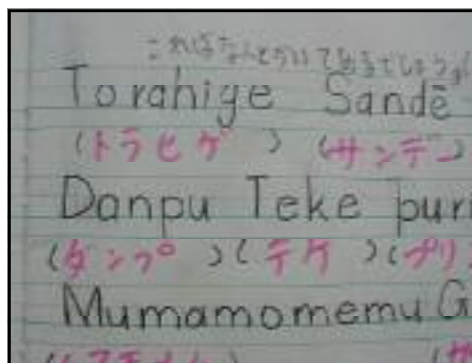 これはなんとかいてあるでしょうか
Torahige Sandē
(トラヒゲ) (サンデー)
Danpu Teke puri
(ダンプ) (テケ) (プリ
Mumamomemu G